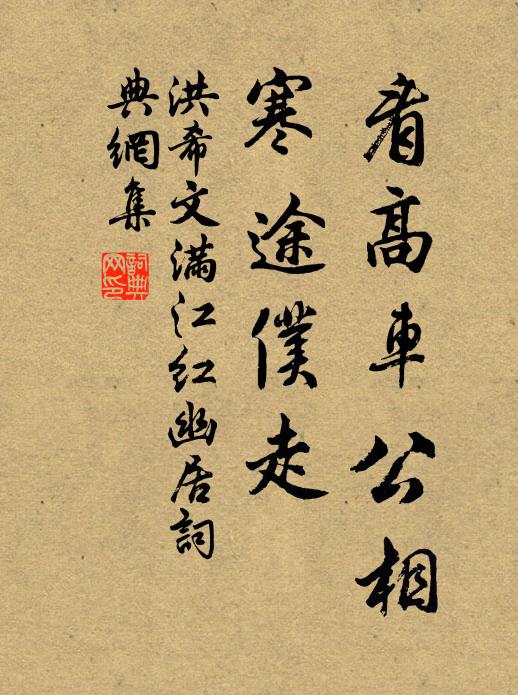 看高車公相
寒途僕走
洪希文滿江紅幽居詞
典網集
詞典網印